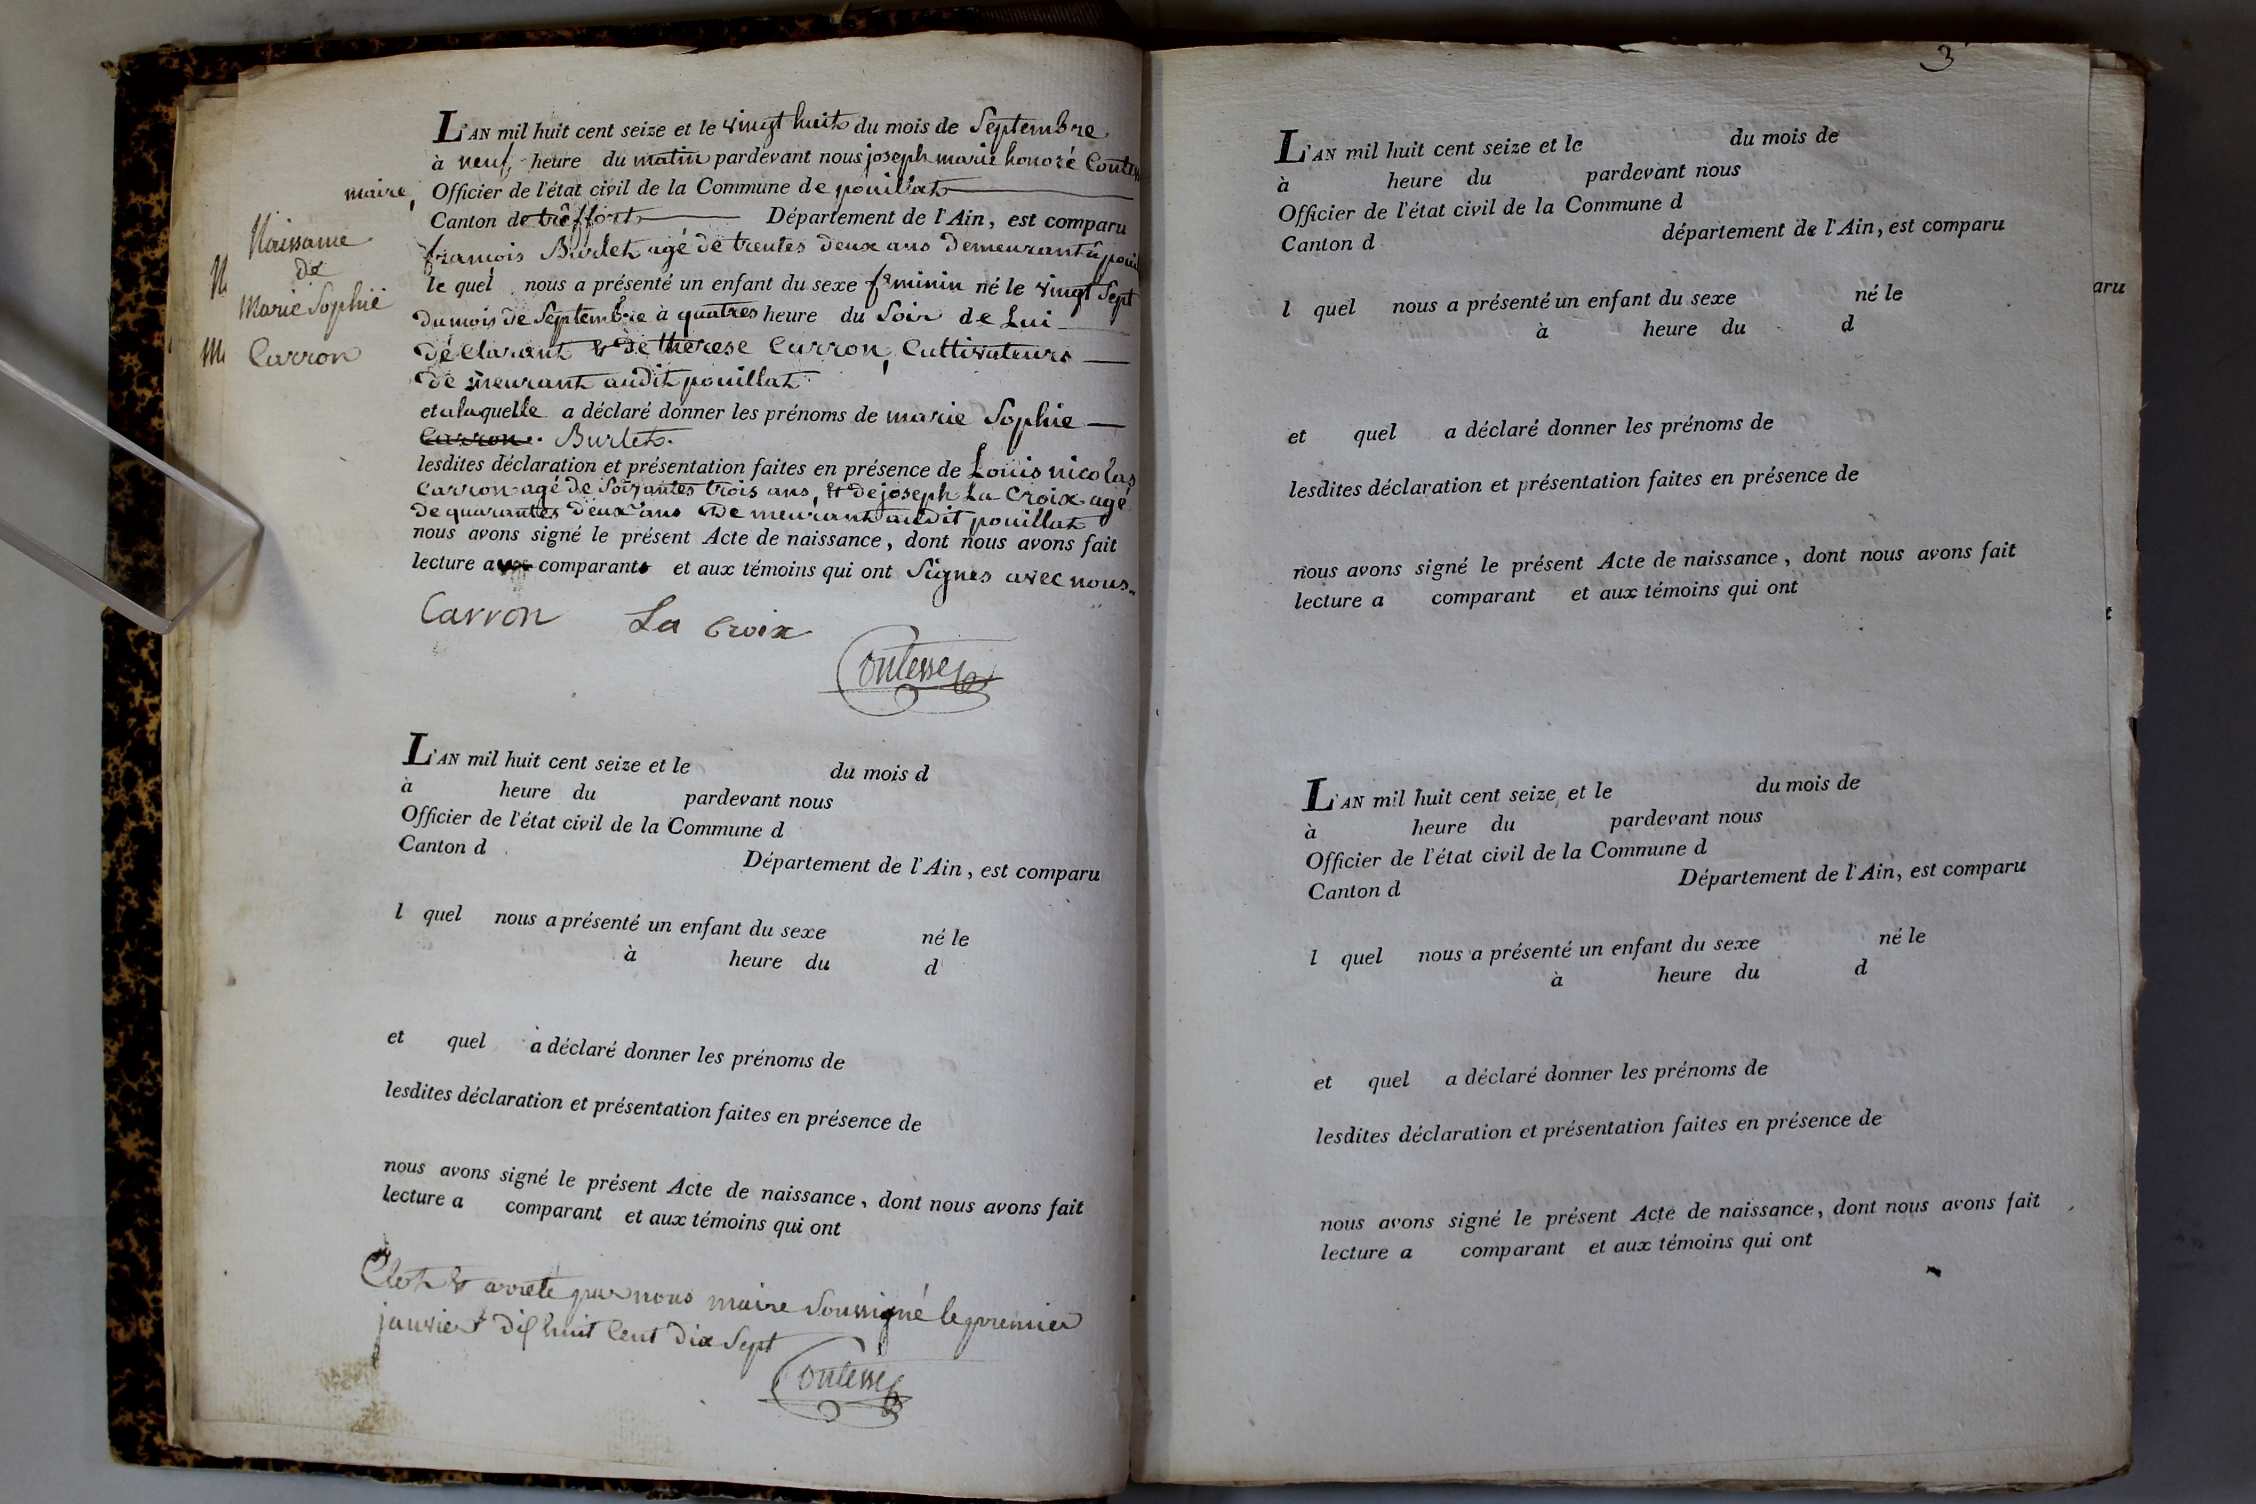 L'AN mil huit cent seize et le vingt huit du mois de Septembre
à neuf heure du matin pardevant nous joseph marie honoré
maire, Officier de l'état civil de la Commune de pouillat
Canton de trêffort Département de l'Ain, est comparu
françois Burlet agé de trentes deux ans demeurant à
le quel nous a présenté un enfant du sexe feminin né le vingt Sept
du mois de Septembre à quatres heure du Soir de Lui
déclarant & de thérese Carron, Cultivateurs
de meurant audit pouillat
et alaquelle a déclaré donner les prénoms de marie Sophie
Carron. Burlet.
lesdites déclaration et présentation faites en présence de Louis nicolas
Carron agé de Soixantes trois ans, & de joseph La Croix agé
de quarantes deux ans de meurant audit pouillat
nous avons signé le présent Acte de naissance, dont nous avons fait
lecture aux comparants et aux témoins qui ont Signes avec nous.
Carron La Croix
Contesse
Naissance
de
Marie Sophie
Carron
L'AN mil huit cent seize et le du mois d
à heure du pardevant nous
Officier de l'état civil de la Commune d
Canton d Département de l'Ain, est comparu
l quel nous a présenté un enfant du sexe né le
à heure du d
et quel a déclaré donner les prénoms de
lesdites déclaration et présentation faites en présence de
nous avons signé le présent Acte de naissance, dont nous avons fait
lecture a comparant et aux témoins qui ont
Clot & arrêté par nous maire Soussigné le premier
janvier dix huit Cent Dix Sept
Contesse
3
L'AN mil huit cent seize et le du mois de
à heure du pardevant nous
Officier de l'état civil de la Commune d
Canton d département de l'Ain, est comparu
l quel nous a présenté un enfant du sexe né le
à heure du d
et quel a déclaré donner les prénoms de
lesdites déclaration et présentation faites en présence de
nous avons signé le présent Acte de naissance, dont nous avons fait
lecture a comparant et aux témoins qui ont
L'AN mil huit cent seize et le du mois de
à heure du pardevant nous
Officier de l'état civil de la Commune d
Canton d Département de l'Ain, est comparu
l quel nous a présenté un enfant du sexe né le
à heure du d
et quel a déclaré donner les prénoms de
lesdites déclaration et présentation faites en présence de
nous avons signé le présent Acte de naissance, dont nous avons fait
lecture a comparant et aux témoins qui ont
aru